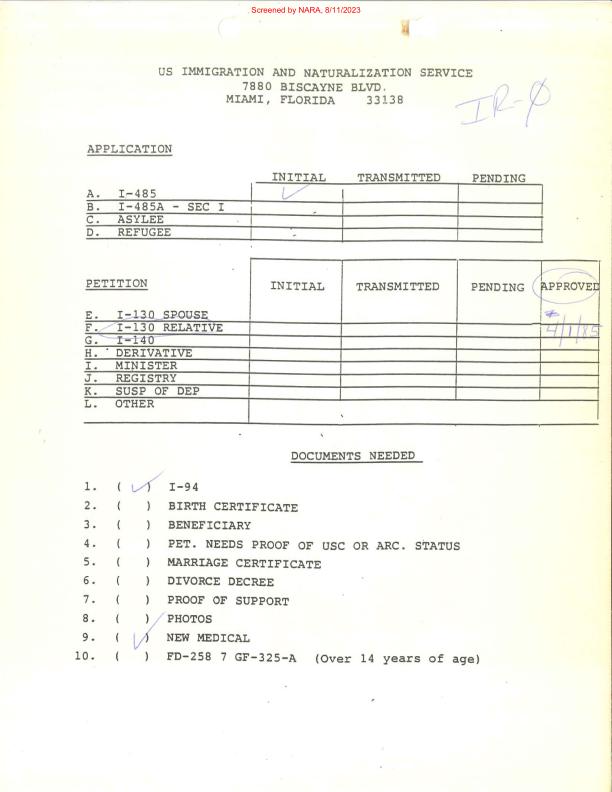 Screened by NARA, 8/11/2023
US IMMIGRATION AND NATURALIZATION SERVICE
7880 BISCAYNE BLVD.
MIAMI, FLORIDA 33138
IR-0
APPLICATION
INITIAL TRANSMITTED PENDING
A. I-485 ✓
B. I-485A - SEC I
C. ASYLEE
D. REFUGEE
PETITION INITIAL TRANSMITTED PENDING APPROVED
E. I-130 SPOUSE
F. I-130 RELATIVE 4/1/85
G. I-140
H. DERIVATIVE
I. MINISTER
J. REGISTRY
K. SUSP OF DEP
L. OTHER
DOCUMENTS NEEDED
1. ( ✓ ) I-94
2. ( ) BIRTH CERTIFICATE
3. ( ) BENEFICIARY
4. ( ) PET. NEEDS PROOF OF USC OR ARC. STATUS
5. ( ) MARRIAGE CERTIFICATE
6. ( ) DIVORCE DECREE
7. ( ) PROOF OF SUPPORT
8. ( ) PHOTOS
9. ( ✓ ) NEW MEDICAL
10. ( ) FD-258 7 GF-325-A (Over 14 years of age)